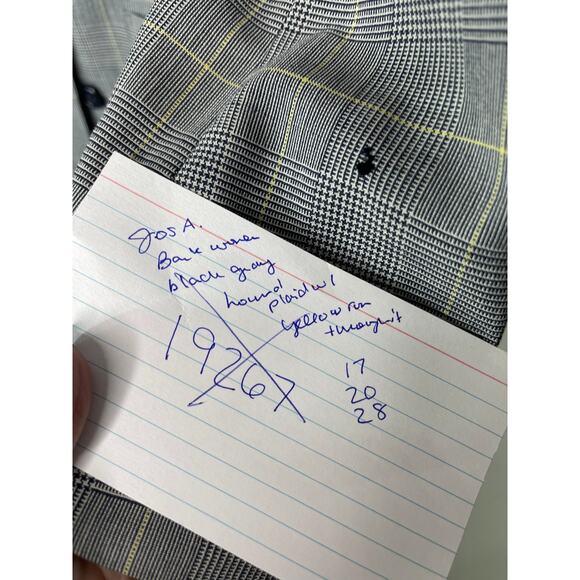 Jos A.
Bank women
black gray
hound
plaid w/
yellow run
through it
19267
17
20
28